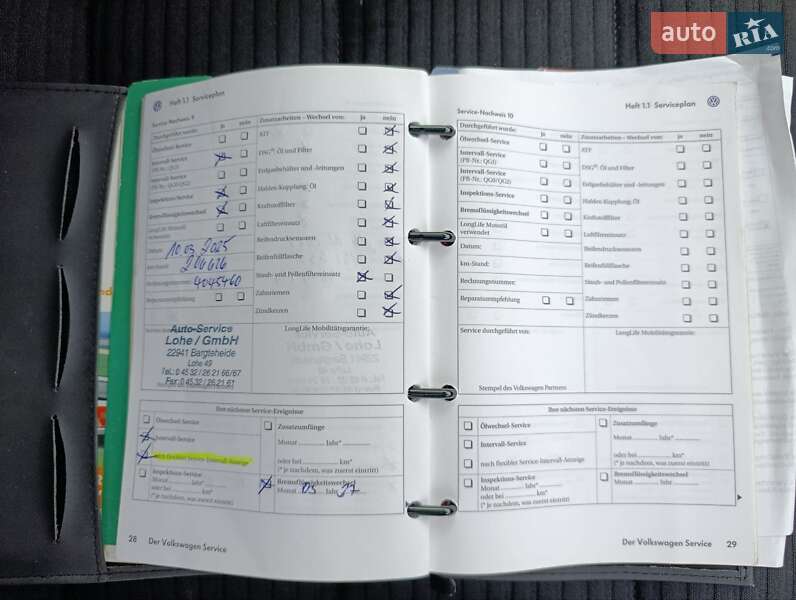 auto RIA.com
Heft 1.1 Serviceplan
Service-Nachweis 9
Durchgeführt wurde: ja nein
Ölwechsel-Service
Intervall-Service
(PR-Nr.: QG1)
Intervall-Service
(PR-Nr.: QG0/QG2)
Inspektions-Service
Bremsflüssigkeitswechsel
LongLife Motoröl
verwendet
Datum: 10.03.2025
km-Stand: 206626
Rechnungsnummer: 4045460
Reparaturempfehlung
Zusatzarbeiten – Wechsel von: ja nein
ATF
DSG®: Öl und Filter
Erdgasbehälter und -leitungen
Haldex-Kupplung: Öl
Kraftstofffilter
Luftfiltereinsatz
Reifendrucksensoren
Reifenfüllflasche
Staub- und Pollenfiltereinsatz
Zahnriemen
Zündkerzen
Auto-Service
Lohe / GmbH
22941 Bargteheide
Lohe 49
Tel.: 0 45 32 / 26 21 66/67
Fax: 0 45 32 / 26 21 61
LongLife Mobilitätsgarantie:
Ihre nächsten Service-Ereignisse
Ölwechsel-Service
Intervall-Service
nach flexibler Service-Intervall-Anzeige
Inspektions-Service
Monat ............ Jahr* ............
oder bei ............ km*
(* je nachdem, was zuerst eintritt)
Zusatzumfänge
Monat ............ Jahr* ............
oder bei ............ km*
(* je nachdem, was zuerst eintritt)
Bremsflüssigkeitswechsel
Monat 03 Jahr 27
28 Der Volkswagen Service
Service-Nachweis 10
Heft 1.1 Serviceplan
Durchgeführt wurde: ja nein
Ölwechsel-Service
Intervall-Service
(PR-Nr.: QG1)
Intervall-Service
(PR-Nr.: QG0/QG2)
Inspektions-Service
Bremsflüssigkeitswechsel
LongLife Motoröl
verwendet
Datum:
km-Stand:
Rechnungsnummer:
Reparaturempfehlung
Zusatzarbeiten – Wechsel von: ja nein
ATF
DSG®: Öl und Filter
Erdgasbehälter und -leitungen
Haldex-Kupplung: Öl
Kraftstofffilter
Luftfiltereinsatz
Reifendrucksensoren
Reifenfüllflasche
Staub- und Pollenfiltereinsatz
Zahnriemen
Zündkerzen
Service durchgeführt von:
LongLife Mobilitätsgarantie:
Stempel des Volkswagen Partners
Ihre nächsten Service-Ereignisse
Ölwechsel-Service
Intervall-Service
nach flexibler Service-Intervall-Anzeige
Inspektions-Service
Monat ............ Jahr* ............
oder bei ............ km*
(* je nachdem, was zuerst eintritt)
Zusatzumfänge
Monat ............ Jahr* ............
oder bei ............ km*
(* je nachdem, was zuerst eintritt)
Bremsflüssigkeitswechsel
Monat ............ Jahr ............
Der Volkswagen Service 29